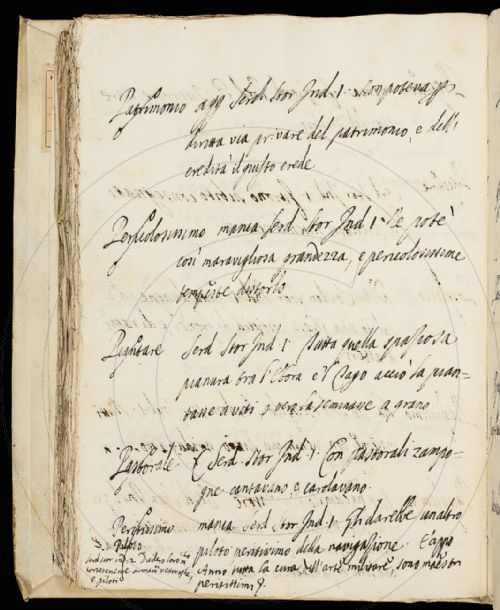 Patrimonio agg Serd Stor Ind. 1. Non poteva p
diritta via privare del patrimonio, e dell'
eredità il giusto erede
Pericolosissimo manca Serd Stor Ind. 1. Ne potè
così maravigliosa grandezza, e pericolosissime
tempeste distorlo
Piantare Serd Stor Ind. 1. tutta quella spaziosa
pianura tra l' e'l acciò la pian-
tasse a viti o vero la seminasse a grano
Pastorale Serd Stor Ind. 1. Con pastorali zampo-
gne cantavano, e carolavano.
Peritissimo manca Serd Stor Ind. 1. Gli darebbe un altro
piloto peritissimo della navigazione. E app
Anno tutta la cura dell'arte maestri
peritissimi
Piloto
Serd stor ind. 2 Dietro loro
e piloti